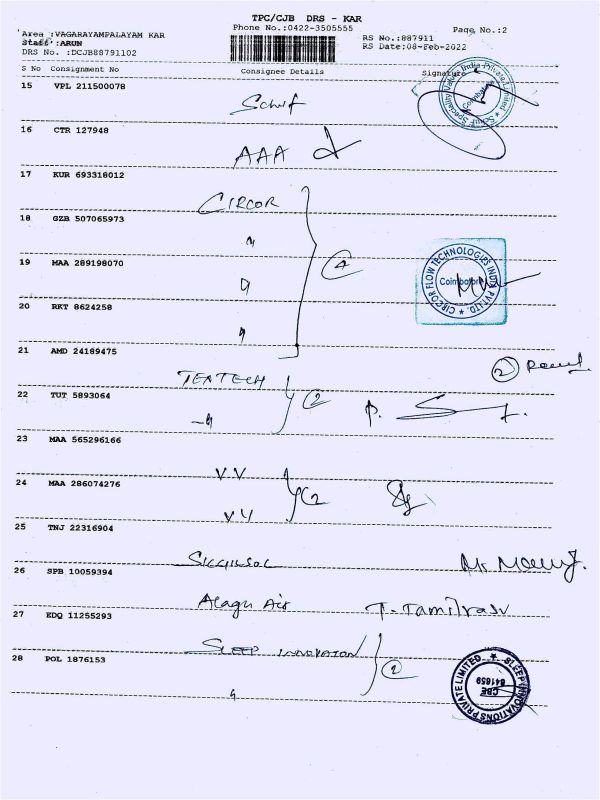 TPC/CJB DRS - KAR
Phone No.:0422-3505555
Area :VAGARAYAMPALAYAM KAR
Staff :ARUN
DRS No. :DCJB88791102
RS No.:887911
RS Date:08-Feb-2022
Page No.:2
S No Consignment No Consignee Details Signature
15 VPL 211500078
Schuf
Coimbatore
16 CTR 127948
AAA
17 KUR 693318012
CIRCOR
18 GZB 507065973
"
19 MAA 289198070
"
4
CIRCOR FLOW TECHNOLOGIES INDIA PVT LTD.
Coimbatore
20 RKT 8624258
"
21 AMD 24189475
TEXTECH
2
22 TUT 5893064
"
2
23 MAA 565296166
VV
24 MAA 286074276
VV
2
25 TNJ 22316904
26 SPB 10059394
Alagu Air
T. Tamilrasu
27 KDQ 11255293
SLEEP INNOVATION
28 POL 1876153
"
2
SLEEP INNOVATIONS PRIVATE LIMITED
CBE
641659